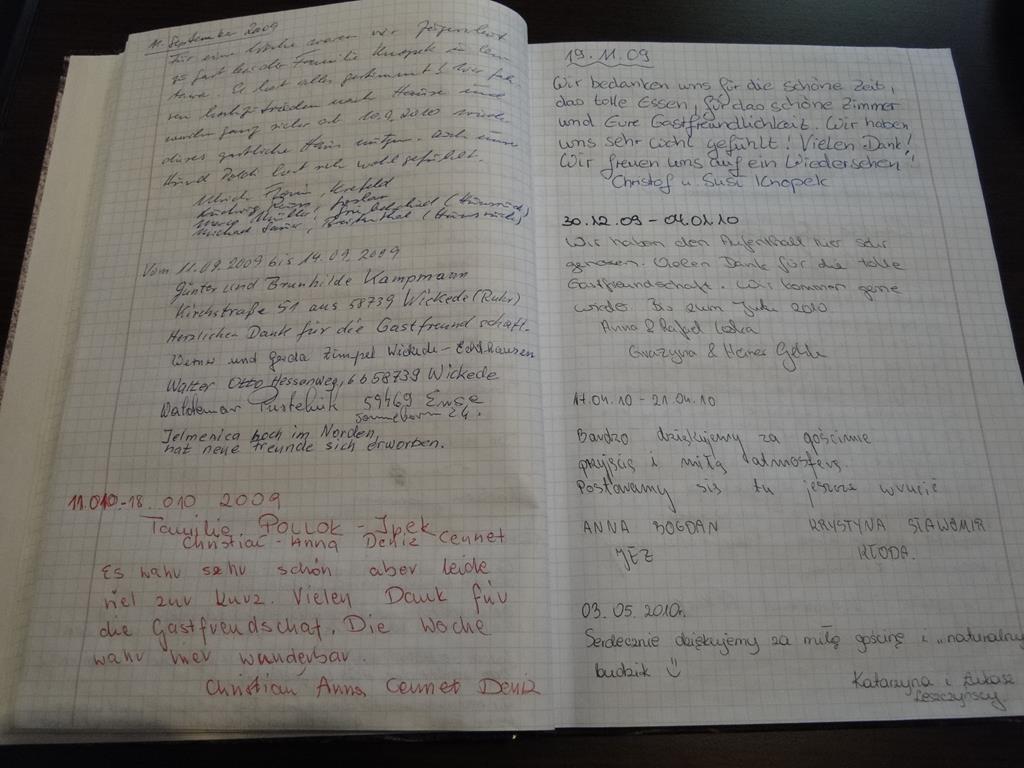 11. September 2009
Für eine Woche waren wir
zu Gast bei der Familie Knopek in
Es hat alles gestimmt
nach Hause und
10.9.2010
dieses gastliche Haus
Hund hat sich wohl gefühlt.
Krefeld
(Hunsrück)
(Hunsrück)
Vom 11.09.2009 bis 14.09.2009
Günter und Brunhilde Kampmann
Kirchstraße 51 aus 58739 Wickede (Ruhr)
Herzlichen Dank für die Gastfreundschaft.
Werner und Gerda Zimpel Wickede-Echthausen
Walter Otto Hessenweg, 6b 58739 Wickede
Waldemar Pustelnik 59469 Ense
24.
Jelmenica hoch im Norden,
hat neue freunde sich erworben.
11.010-18.010 2009
Familie. POLLOK - Ipek
Christian - Anna Deniz Cennet
Es wahr sehr schön aber leide
viel zur kurz. Vielen Dank für
die Gastfreudschaf. Die Woche
wahr hier wunderbar.
Christian Anna Cennet Deniz
19.11.09
Wir bedanken uns für die schöne Zeit,
das tolle Essen, für das schöne Zimmer
und Eure Gastfreundlichkeit. Wir haben
uns sehr wohl gefühlt! Vielen Dank!
Wir freuen uns auf ein Wiedersehen!!
Christof u. Susi Knopek
30.12.09 - 04.01.10
Wir haben den Aufenthalt hier sehr
genossen. Vielen Dank für die tolle
Gastfreundschaft. Wir kommen gerne
wieder. Bis zum Jahr 2010
Anna & Rafael
Grażyna & Heiner
17.04.10 - 21.04.10
Bardzo dziękujemy za gościnne
przyjście i miłą atmosferę.
Postaramy się tu jeszcze wrócić
ANNA BOGDAN KRYSTYNA SŁAWOMIR
JEŻ KŁODA.
03.05.2010r.
Serdecznie dziękujemy za miłą gościnę i „naturalny
budzik ☺
Katarzyna i Łukasz
Leszczyńscy